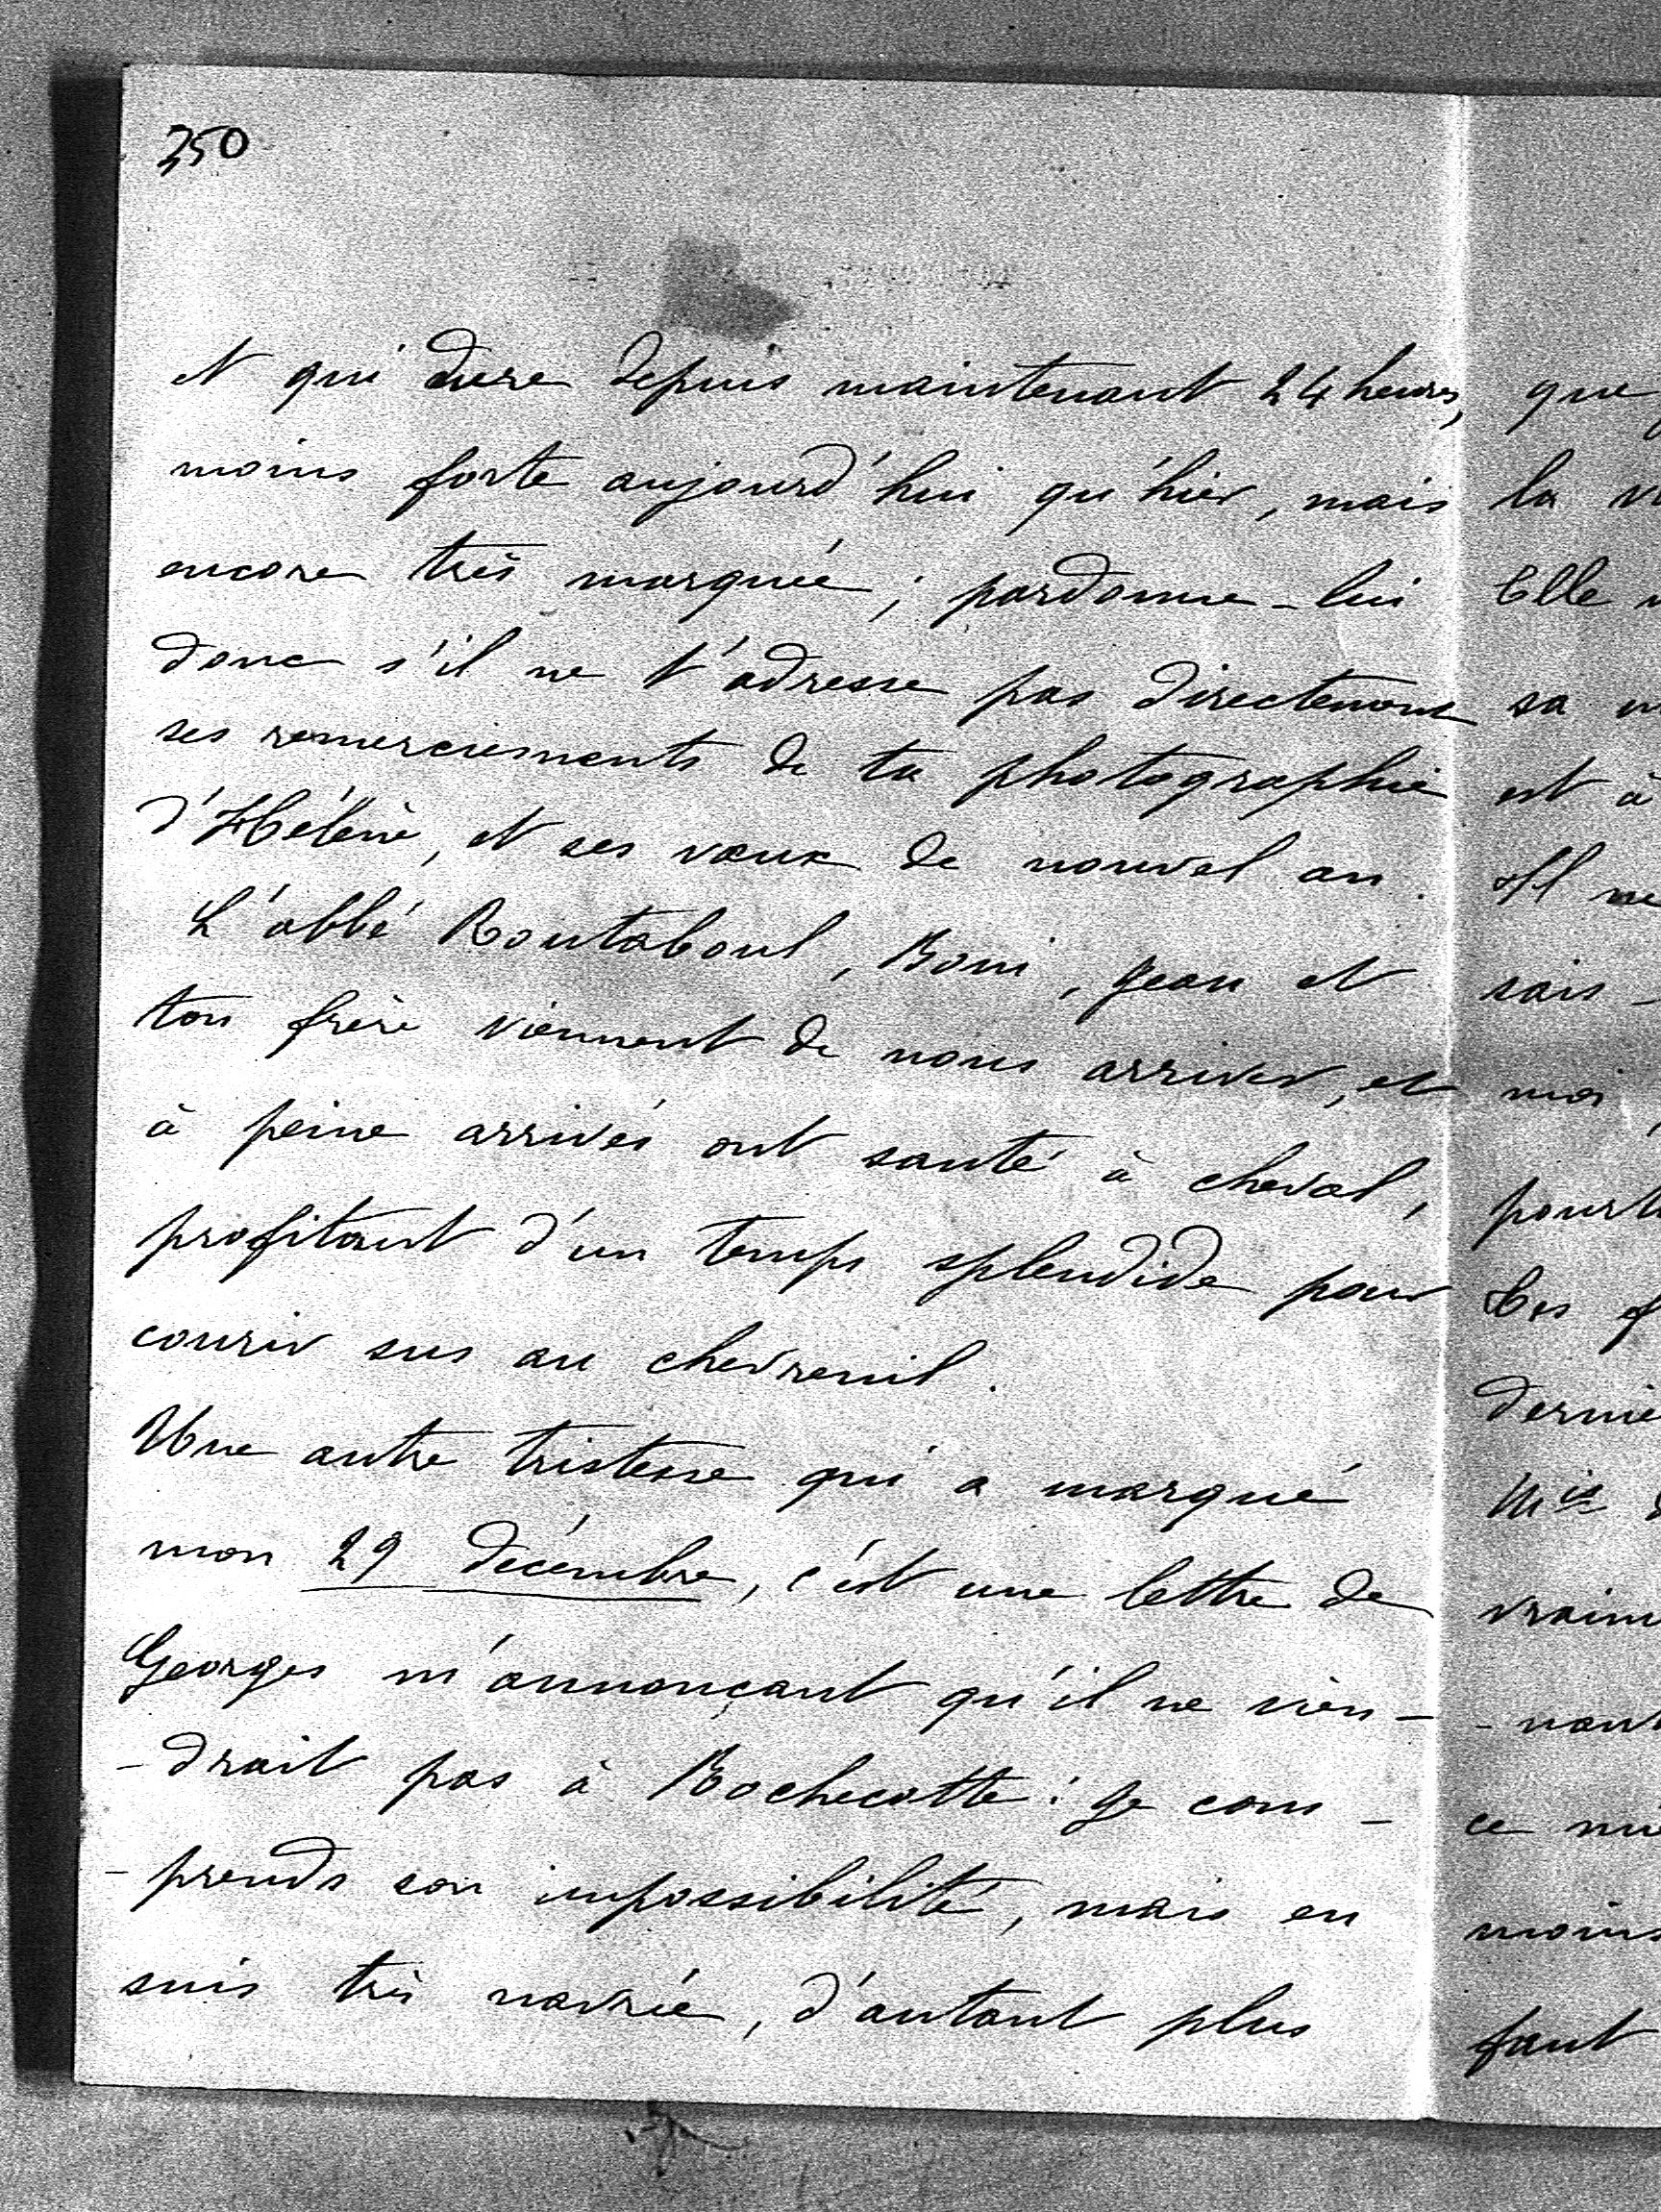 350
et qui dure depuis maintenant 24 heures,
moins forte aujourd'hui qu'hier, mais
encore très marquée ; pardonne-lui
donc s'il ne t'adresse pas directement
ses remerciements de ta photographie
d'Hélène, et ses vœux de nouvel an.
L'abbé Routaboul, Boni, Jean et
ton frère viennent de nous arriver, et
à peine arrivés ont sauté à cheval,
profitant d'un temps splendide pour
courir sus au chevreuil.
Une autre tristesse qui a marqué
mon 29 décembre, c'est une lettre de
Georges m'annonçant qu'il ne vien-
-drait pas à Rochecotte : Je com-
-prends son impossibilité, mais en
suis très navrée, d'autant plus
que
la
Elle
sa
est à
Il ne
sais-
moi
Ces
Mis
ce
moins
faut